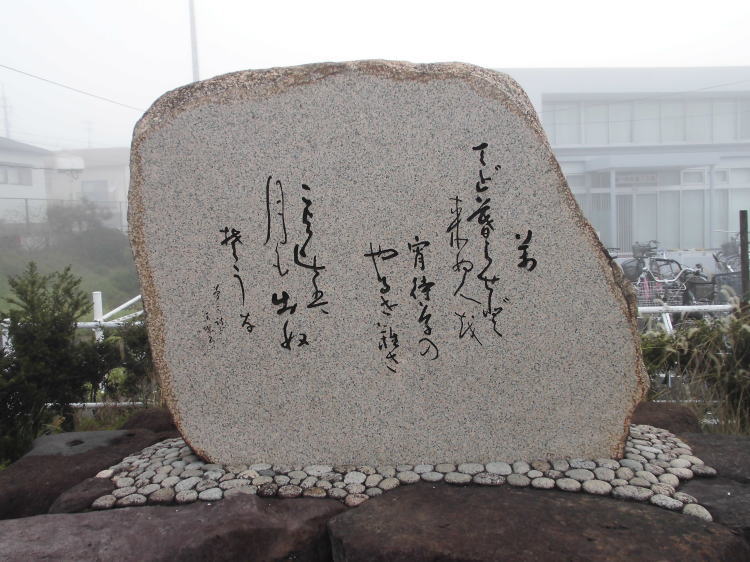 萬
てど暮らせど
来ぬ人を
宵待草の
やるせ難さ
こよ悲は
月も出奴
さうな